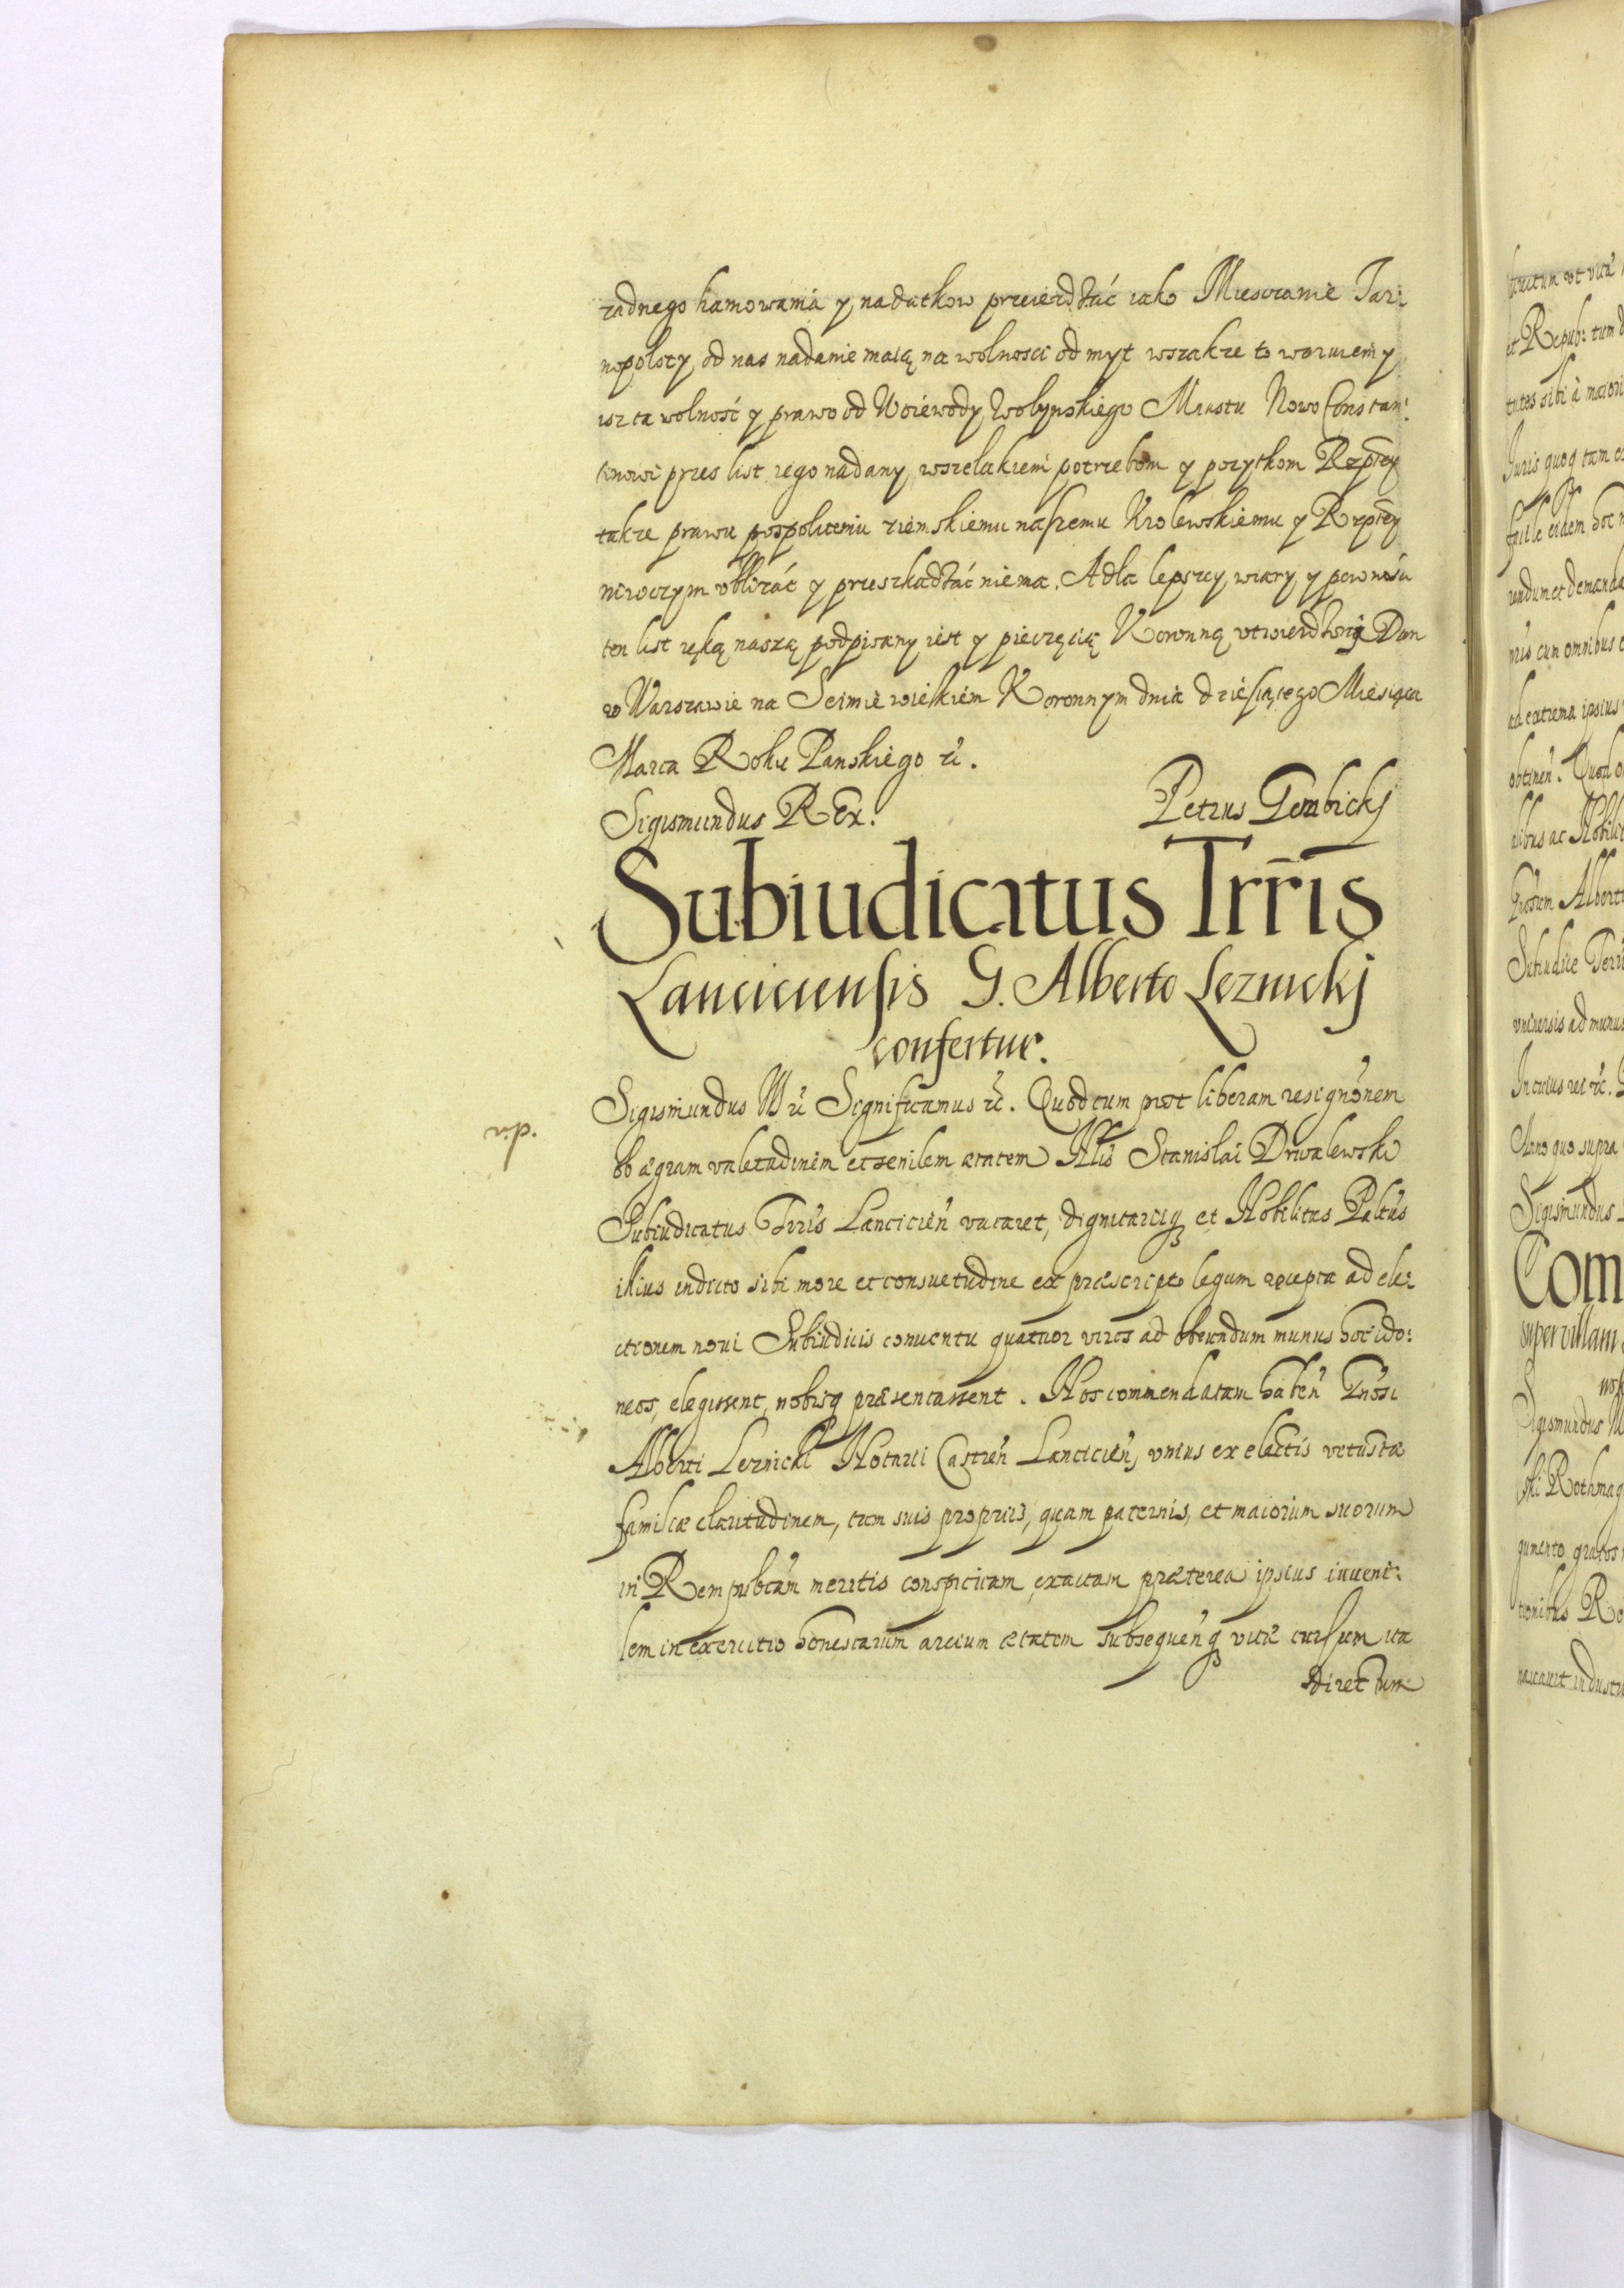 zadnego hamowania y nadatkow przeiezdzać iako Miesczanie Tar:
nopolscy od nas nadanie maią na wolnosci od myt wszakze to waruiemy
isz ta wolność y prawo od Woiewody Wolynskiego Miastu Nowo Constan:
tinowi przes list iego nadany, wszelakiem potrzebom y pozytkom Rzptey
takze prawu pospolitemu ziemskiemu naszemu Krolewskiemu y Rzptey
niwczym vbliżać y przeszkadzać niema. A dla lepszey wiary y pewnosci
ten list ręką naszą podpisany iest y pieczęcią Koronną vtwierdzony Dan
w Warszawie na Seimie wielkiem Koronnym dnia dziesiątego Miesiąca
Marca Roku Panskiego etc.
Sigismundus REx. Petrus Gembickj
Subiudicatus Trris
Lanciciensis G. Alberto Leznickj
confertur.
Sigismundus III etc Significamus etc. Quod cum post liberam resignonem
ob ægram valetudinem et senilem ætatem Nlis Stanislai Drwalewski
Subiudicatus Trris Lancicien vacaret, dignitarijq et Nobilitas Paltus
illius indicto sibi more et consuetudine ex præscripto legum recepta ad ele:
ctionem noui Subiudicis conuentu quatuor viros ad obeundum munus hoc ido:
neos, elegissent, nobisq præsentassent. Nos commendatam haben Gnosi
Alberti Leznicki Notarii Castren Lancicien, vnius ex electis vetustæ
familiæ claritudinem, tum suis proprijs, quam paternis, et maiorum suorum
in Rempublcam meritis conspicuam, exactam præterea ipsius iuueni:
lem in exercitio honestarum artium ætatem subsequenq vitæ cursum ita
directum